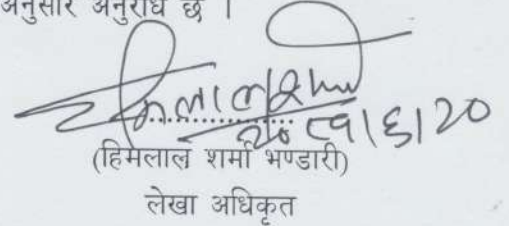 अनुसार अनुरोध छ ।
हिमलाल शर्मा
२०८१।६।२०
(हिमलाल शर्मा भण्डारी)
लेखा अधिकृत